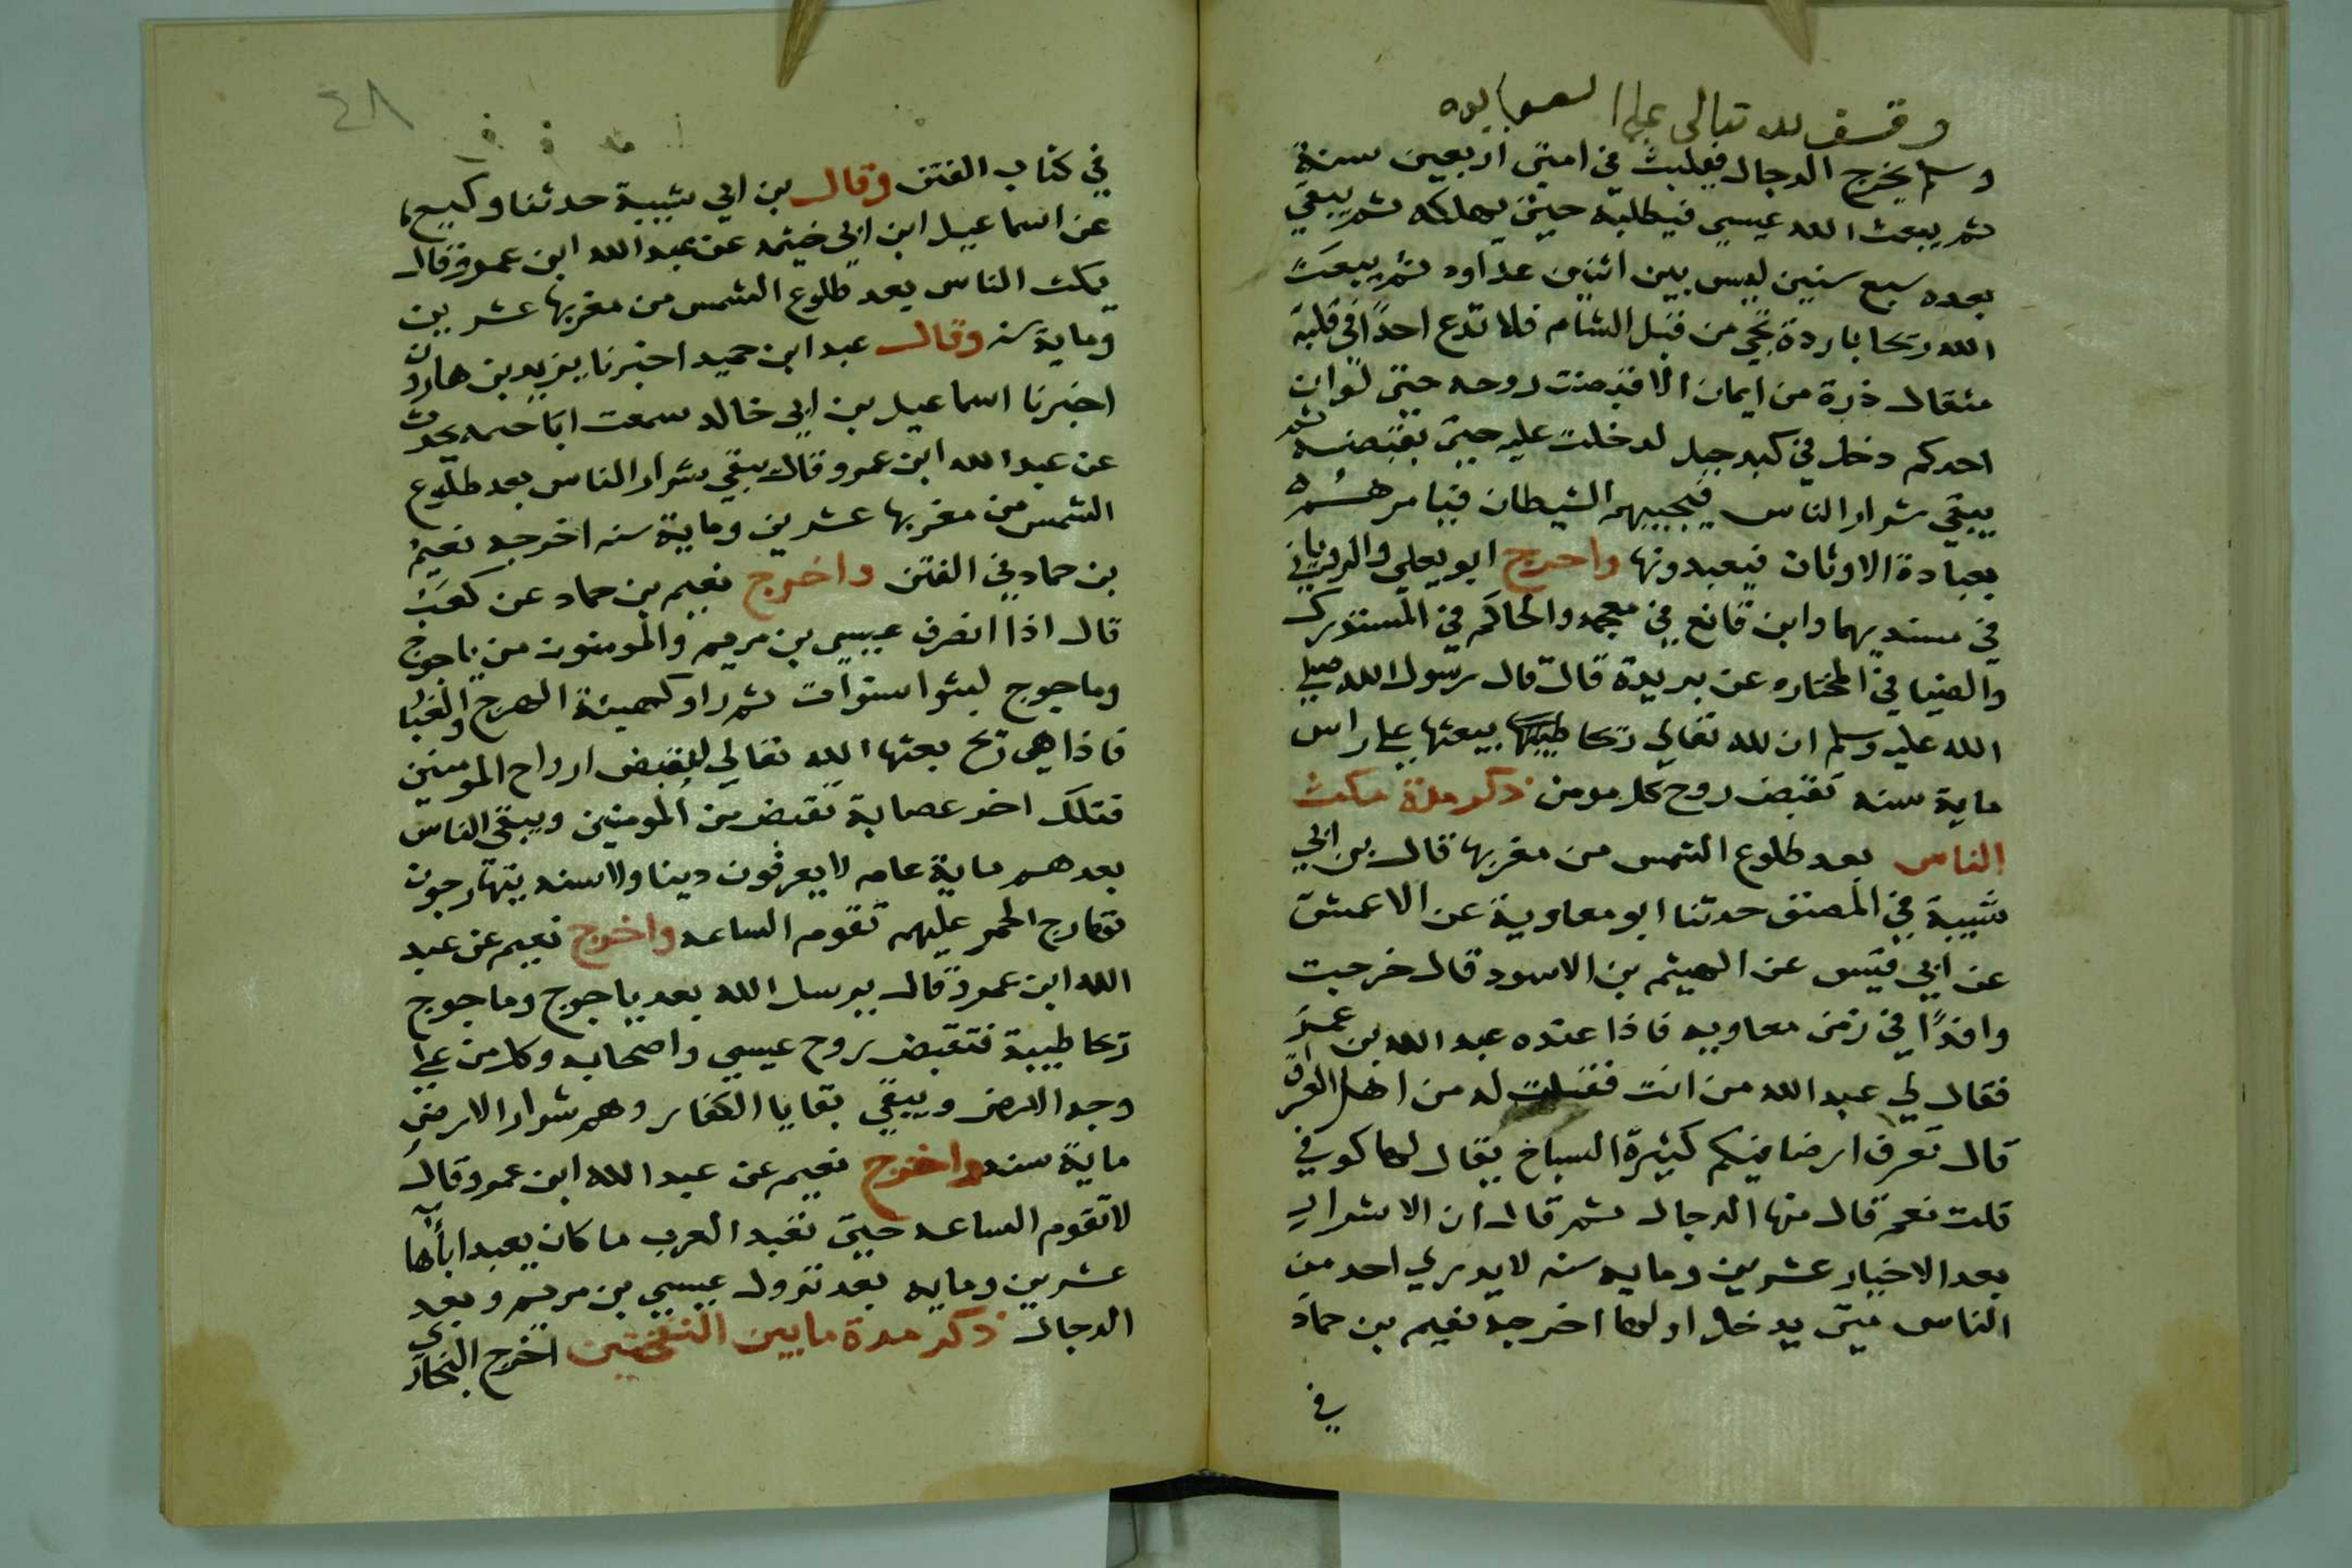 وقف لله تعالى على
وسلم يخرج الدجال فيلبث في امتي اربعين سنة
ثم يبعث الله عيسى فيطلبه حتى يهلكه ثم يبقي
بعده سبع سنين ليس بين اثنين عداوه ثم يبعث
الله ريحا باردة تجي من قبل الشام فلا تدع احدًا في قلبه
مثقال ذرة من ايمان الا قبضت روحه حتى لو ان
احدكم دخل في كبد جبل لدخلت عليه حتى تقبضه ثم
يبقي شرار الناس فيجيبهم الشيطان فيامرهم
بعبادة الاوثان فيعبدونها واخرج ابو يعلي والروياني
في مسنديهما وابن قانع في معجمه والحاكم في المستدرك
والضيا في المختاره عن بريدة قال قال رسول الله صلى
الله عليه وسلم ان لله تعالي ريحا طيبة يبعثها على راس
ماية سنه تقبض روح كل مومن ذكر مدة مكث
الناس بعد طلوع الشمس من مغربها قال بن ابي
شيبة في المصنف حدثنا ابو معاوية عن الاعمش
عن ابي قيس عن الهيثم بن الاسود قال خرجت
وافدًا في زمن معاويه فاذا عنده عبد الله بن عمر
فقال لي عبد الله من انت فقلت له من اهل العراق
قال تعرف ارضا فيكم كثيرة السباخ يقال لها كوفي
قلت نعم قال منها الدجال ثم قال ان الاشرار
بعد الاخيار عشرين ومايه سنه لا يدري احد من
الناس متى يدخل اولها اخرجه نعيم بن حماد
في
٤٨
في كتاب الفتن وقال بن ابي شيبة حدثنا وكيع
عن اسماعيل ابن ابي خيثمه عن عبد الله ابن عمرو قال
يمكث الناس بعد طلوع الشمس من مغربها عشرين
وماية سنه وقال عبد ابن حميد اخبرنا يزيد بن هارون
اخبرنا اسماعيل بن ابي خالد سمعت ابا يحدث
عن عبد الله ابن عمرو قال يبقي شرار الناس بعد طلوع
الشمس من مغربها عشرين وماية سنه اخرجه نعيم
بن حماد في الفتن واخرج نعيم بن حماد عن كعب
قال اذا انصرف عيسى بن مريم والمومنون من ياجوج
وماجوج لبثوا سنوات ثم راو كهيئة الهرج والغبا
فاذا هي ريح بعثها الله تعالي لتقبض ارواح المومنين
فتلك اخر عصابة تقبض من المومنين ويبقى الناس
بعدهم ماية عام لا يعرفون دينا ولا سنه يتهارجون
تهارج الحمر عليهم تقوم الساعه واخرج نعيم عن عبد
الله ابن عمرو قال يرسل الله بعد ياجوج وماجوج
ريحا طيبة فتقبض روح عيسي واصحابه وكل من على
وجه الارض ويبقي بقايا الكفار وهم شرار الارض
ماية سنه واخرج نعيم عن عبد الله ابن عمرو قال
لا تقوم الساعه حتى تعبد العرب ما كان يعبد اباها
عشرين ومايه بعد نزول عيسي بن مريم وبعد
الدجال ذكر مدة ما بين النفختين اخرج البخاري